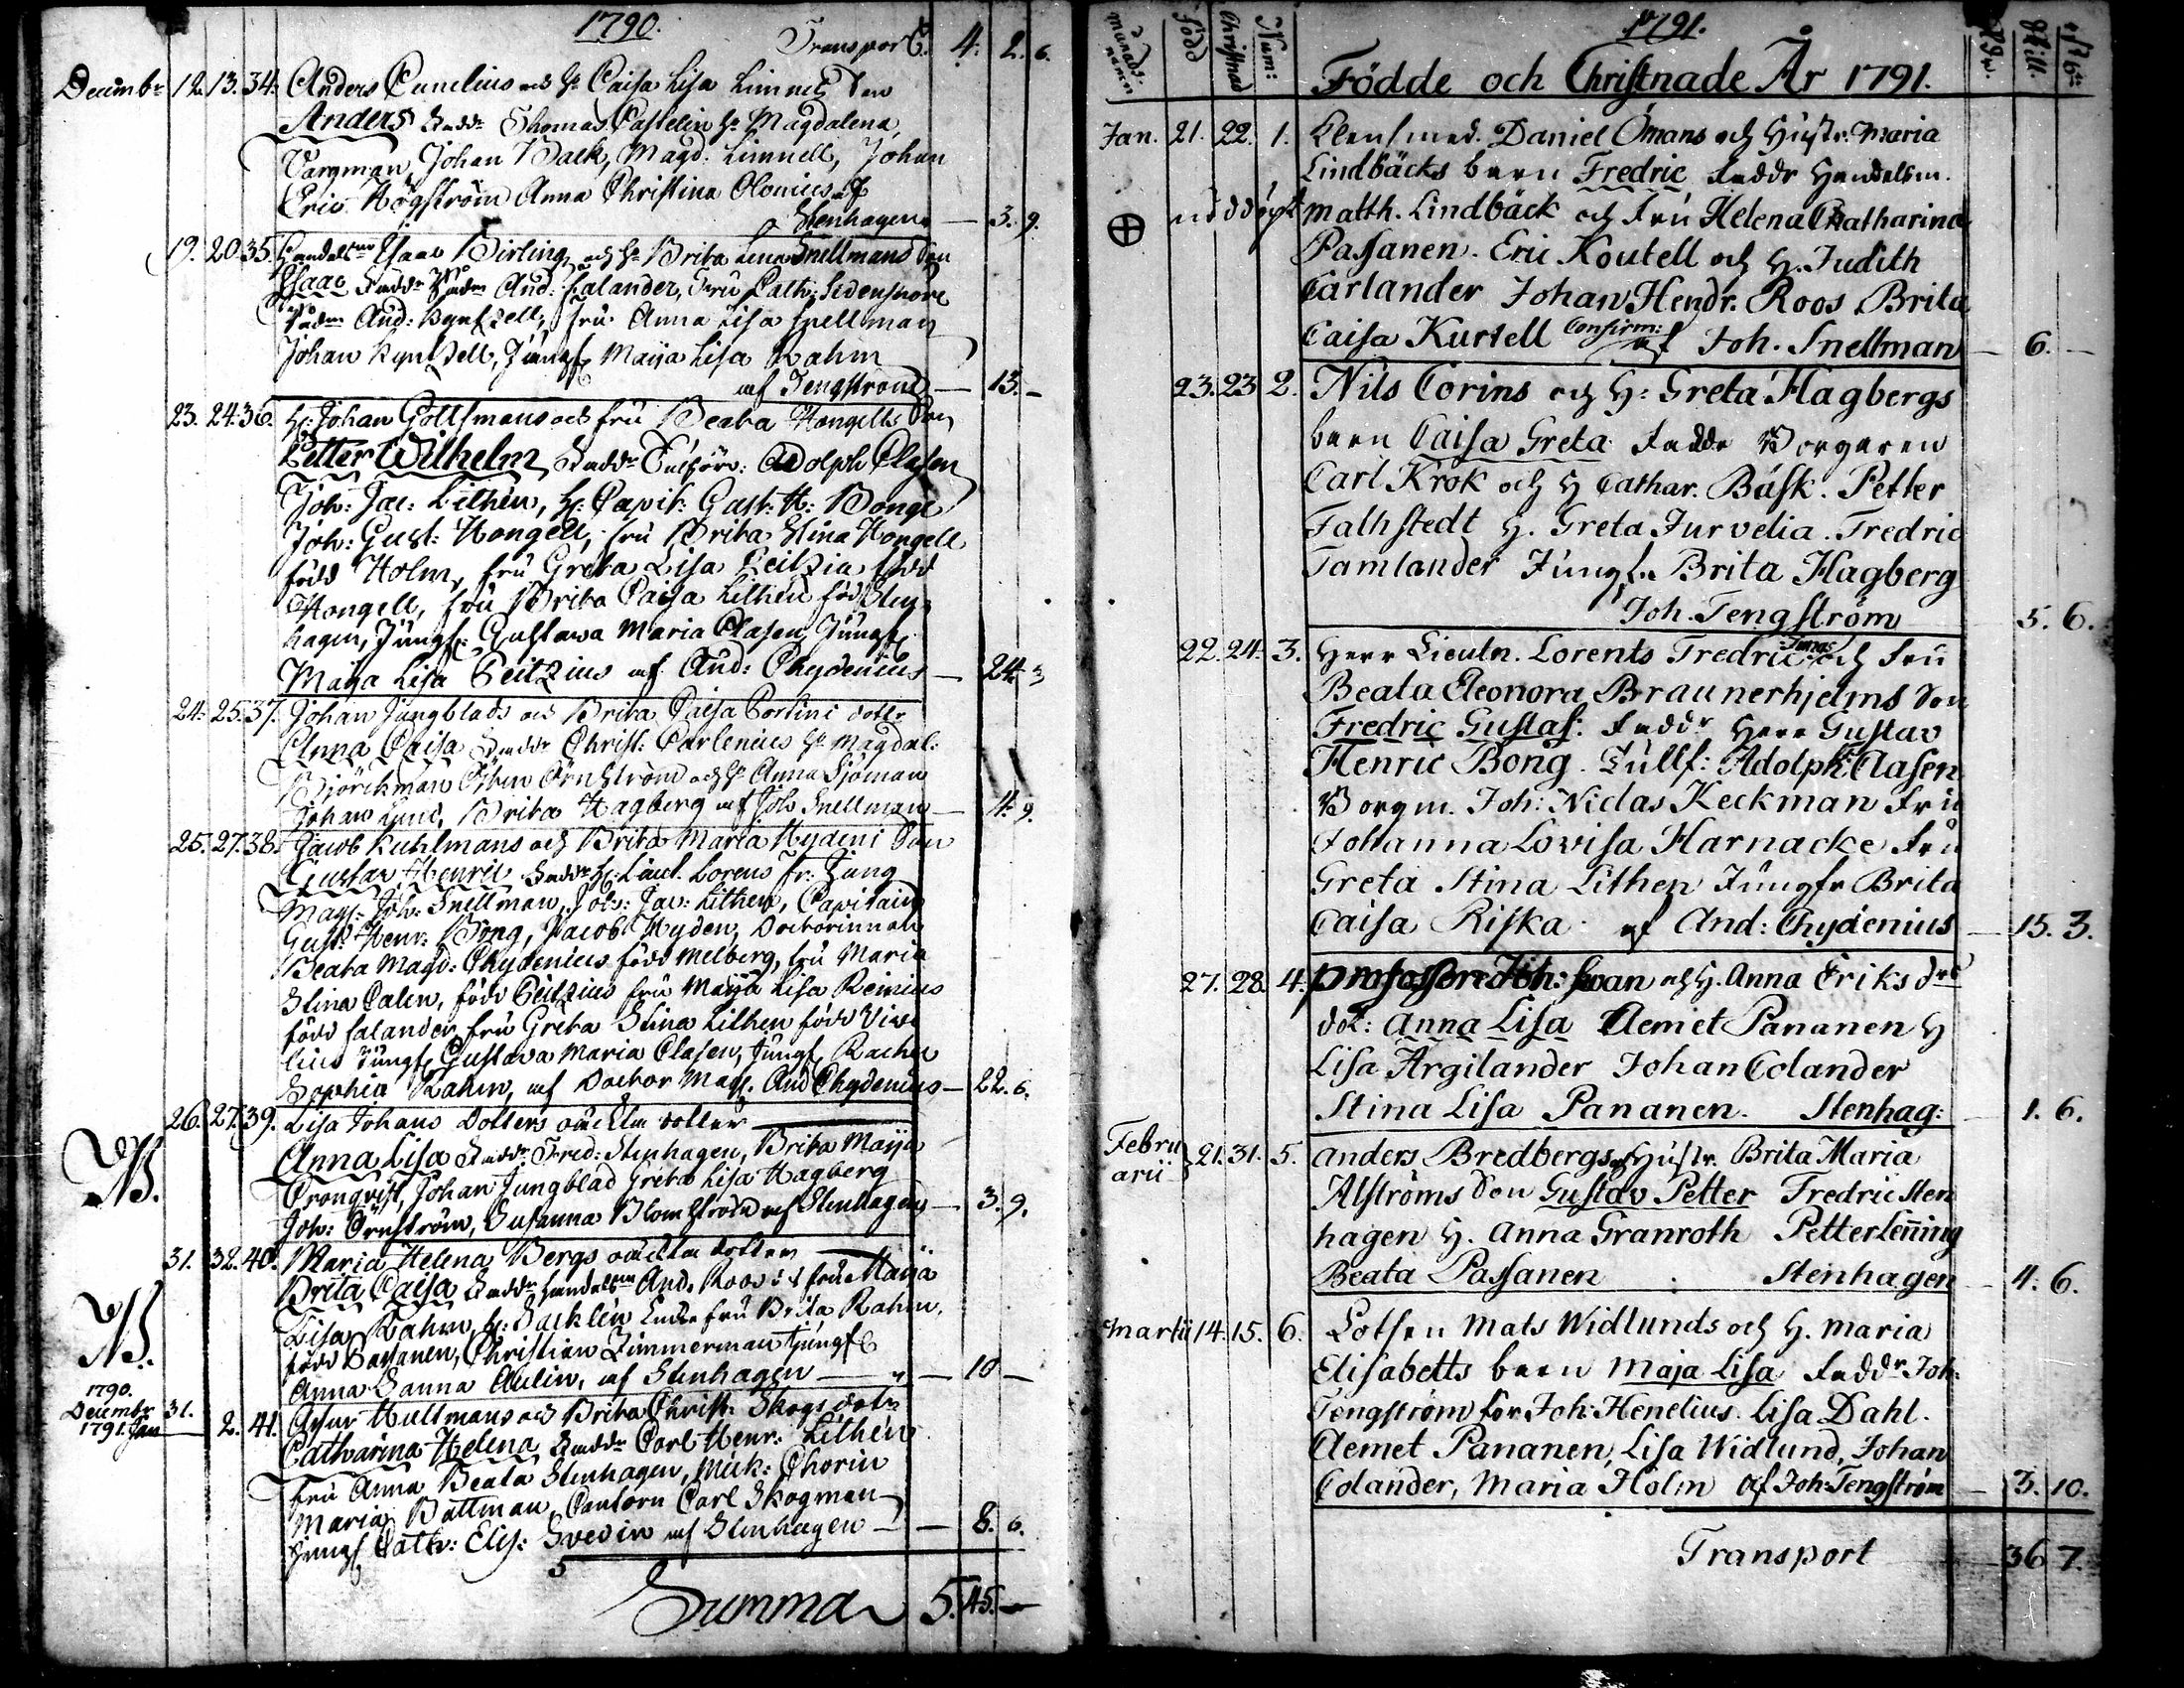 1790.
Transport. 4. 2. 6.
Decembr 12. 13. 34. Anders Cunelius och H: Caisa Lisa Linnels Son
Anders Faddr Thomas Castelin H: Magdalena
Vargman, Johan Back, Magd: Linnell, Johan
Eric Högström Anna Christina Olonius af
Stenhagen — 3. 9.
19. 20. 35. Handelsm Isaac Birling och H: Brita Lena Snellmans Son
Isaac Faddr And: Falander, Fru Cath:
And: Kyntzell, Fru Anna Lisa Snellman
Johan Kyntzell, Jungf Maija Lisa Rahm
af Tengström — 13. —
23. 24. 36. H: Johan Gottsmans och fru Beata Hongells Son
Petter Wilhelm Faddr Adolph Clasen
Joh: Jac: Lithen, H: Capit: Gust: H: Bonge
Joh: Gust: Hongell, fru Brita Stina Hongell
född Holm, fru Greta Lisa Ceitzia född
Hongell, fru Brita Caisa Lithen föd Sten
hagen, Jungf: Gustava Maria Clasen Jungf
Maija Lisa Ceitzius af And: Chydenius — 24. 3
24. 25. 37. Johan Jungblads och Brita Caisa Corlini dottr
Anna Caisa Faddr Christ: Carlenius H: Magdal:
Björckman Örnström och H: Anna Sjöman
Johan Lund, Brita Hagberg af Joh Snellman — 4. 9.
25. 27. 38. Jacob Kuhlmans och Brita Maria Hydeni Son
Gustav Henric Faddr H: Lieut. Lorens Fr: Jung
Mag: Joh: Snellman, Joh: Jac: Lithen, Capitain
Gust: Henr: Bong, Jacob Hyden, Doctorinnan
Beata Magd: Chydenius född Melberg, fru Maria
Stina Calen, född Ceitzius fru Maija Lisa Reinius
född Falander, fru Greta Stina Lithen född Vise
lius Jungf Gustava Maria Clasen, Jungf Rachel
Sophia Rahm, af Doctor Mag. And Chydenius — 22. 6.
26. 27. 39. Lisa Johans Dotters oäckta dotter
Anna Lisa Faddr Fred: Stenhagen, Brita Maija
Cronqvist, Johan Jungblad Greta Lisa Hagberg
Joh: Örnström, Susanna Blomström af Stenhagen — 3. 9.
31. 32. 40. Maria Helena Bergs oäckta dotter
Brita Caisa Faddr handelsm And. Roos och fru Maija
Lisa Rahm, H: Backlen Enka fru Brita Rahm,
född Passanen, Christian Zimmerman Jungf
Anna Sanna Aulin, af Stenhagen — 10 —
1790.
Decembr 31.
1791. Jan 2. 41. Hultmans och Brita Christ: Skogs dotr
Catharina Helena Faddr Carl Henr: Lithen
fru Anna Beata Stenhagen, Mick: Chorin
Maria Battman, Cantorn Carl Skogman
Jungf Cath: Elis: Svevin af Stenhagen — 8. 6.
Summa 5. 45. —
1791.
Månads namn Född Christnad Num:
Födde och Christnade År 1791.
Jan. 21. 22. 1. Daniel Ömans och Hustr: Maria
Lindbäcks barn Fredric Faddr Handelsm.
nöddöpt Matth. Lindbäck och Fru Helena Catharina
Passanen. Eric Koutell och H. Judith
Carlander Johan Hendr. Roos Brita
Caisa Kurtell Confirm: af Joh. Snellman — 6. —
23. 23 2. Nils Corins och H: Greta Hagbergs
barn Caisa Greta Faddr Borgaren
Carl Krok och H Cathar. Båsk. Petter
Falhstedt H. Greta Jurvelia. Fredric
Tamlander Jungfr Brita Hagberg
Joh. Tengström 5. 6.
22. 24. 3. Herr Lieutn. Lorents Fredric Jungs och Fru
Beata Eleonora Braunerhjelms Son
Fredric Gustaf: Faddr Herr Gustav
Henric Bong. Tullf: Adolph Clasen
Borgm. Joh: Niclas Keckman Fru
Johanna Lovisa Harnacke Fru
Greta Stina Lithen Jungfr Brita
Caisa Riska af And: Chydenius — 15. 3.
27. 28. 4. Joh: Svan och H. Anna Eriks dr
dot: Anna Lisa Clemet Pananen H
Lisa Argilander Johan Colander
Stina Lisa Pananen. Stenhag: — 1. 6.
Febru
arii 21. 31. 5. Anders Bredbergs och Hustr. Brita Maria
Alströms Son Gustav Petter Fredric Sten
hagen H. Anna Granroth Petter Lenning
Beata Passanen Stenhagen — 4. 6.
Martii 14. 15. 6. Lotsen Mats Widlunds och H. Maria
Elisabetts barn Maja Lisa Faddr Joh:
Tengström för Joh: Henelius. Lisa Dahl.
Clemet Pananen, Lisa Widlund, Johan
Colander, Maria Holm af Joh: Tengström — 3. 10.
Transport 36 7.